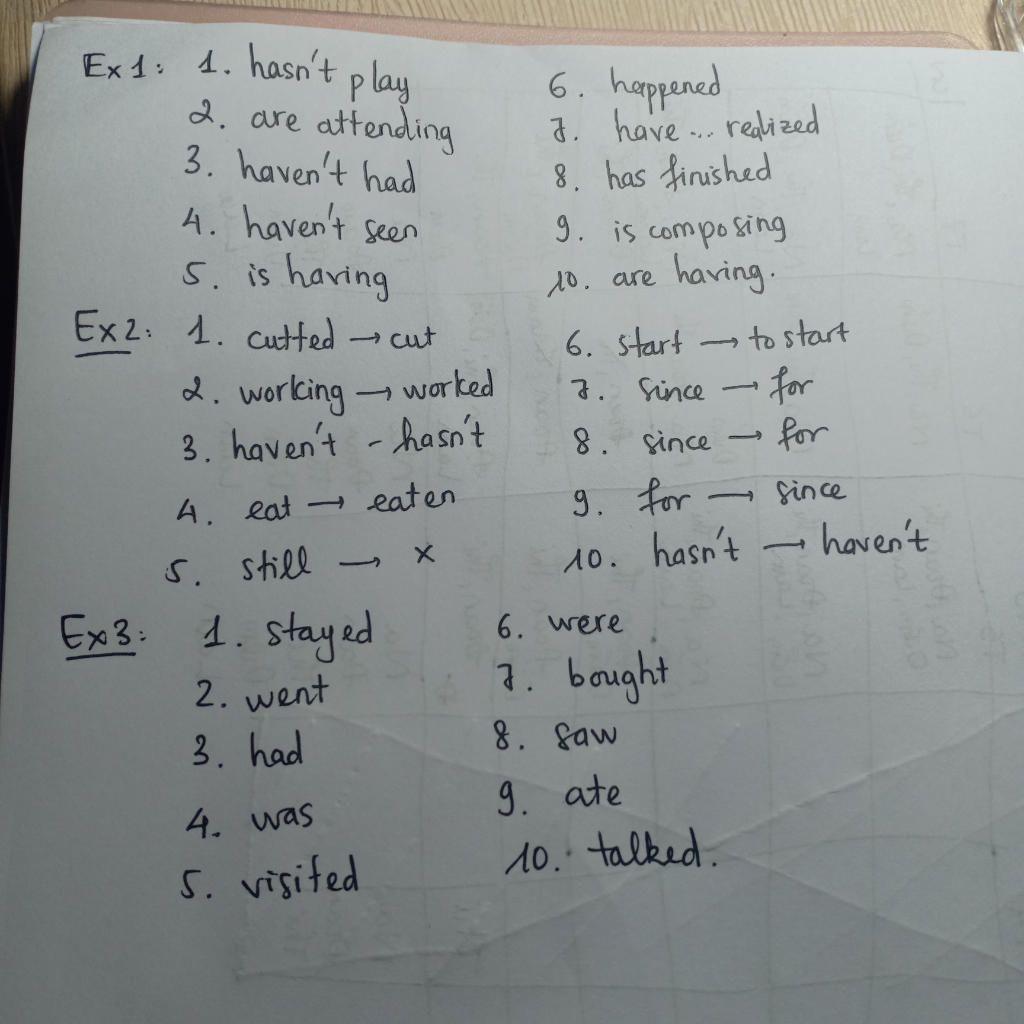 Ex1: 1. hasn't play
2. are attending
3. haven't had
4. haven't seen
5. is having
6. happened
7. have ... realized
8. has finished
9. is composing
10. are having.
Ex2: 1. cutted → cut
2. working → worked
3. haven't - hasn't
4. eat → eaten
5. still → x
6. start → to start
7. since → for
8. since → for
9. for → since
10. hasn't → haven't
Ex3: 1. stayed
2. went
3. had
4. was
5. visited
6. were
7. bought
8. saw
9. ate
10. talked.